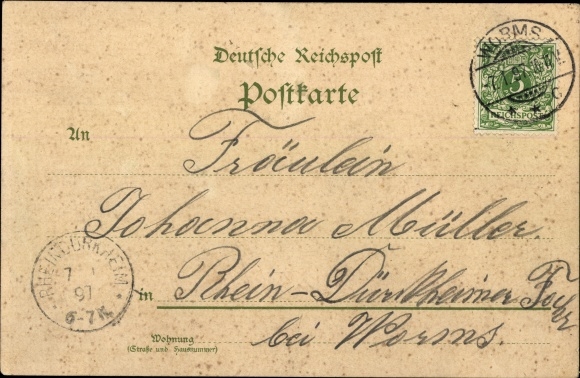 Deutsche Reichspost
Postkarte
WORMS
5
REICHSPOST
An
Fräulein
Johanna Müller.
RHEINDÜRKHEIM
7
97
6-7N
in Rhein-Dürkheimer
bei Worms.
Wohnung
(Straße und Hausnummer)